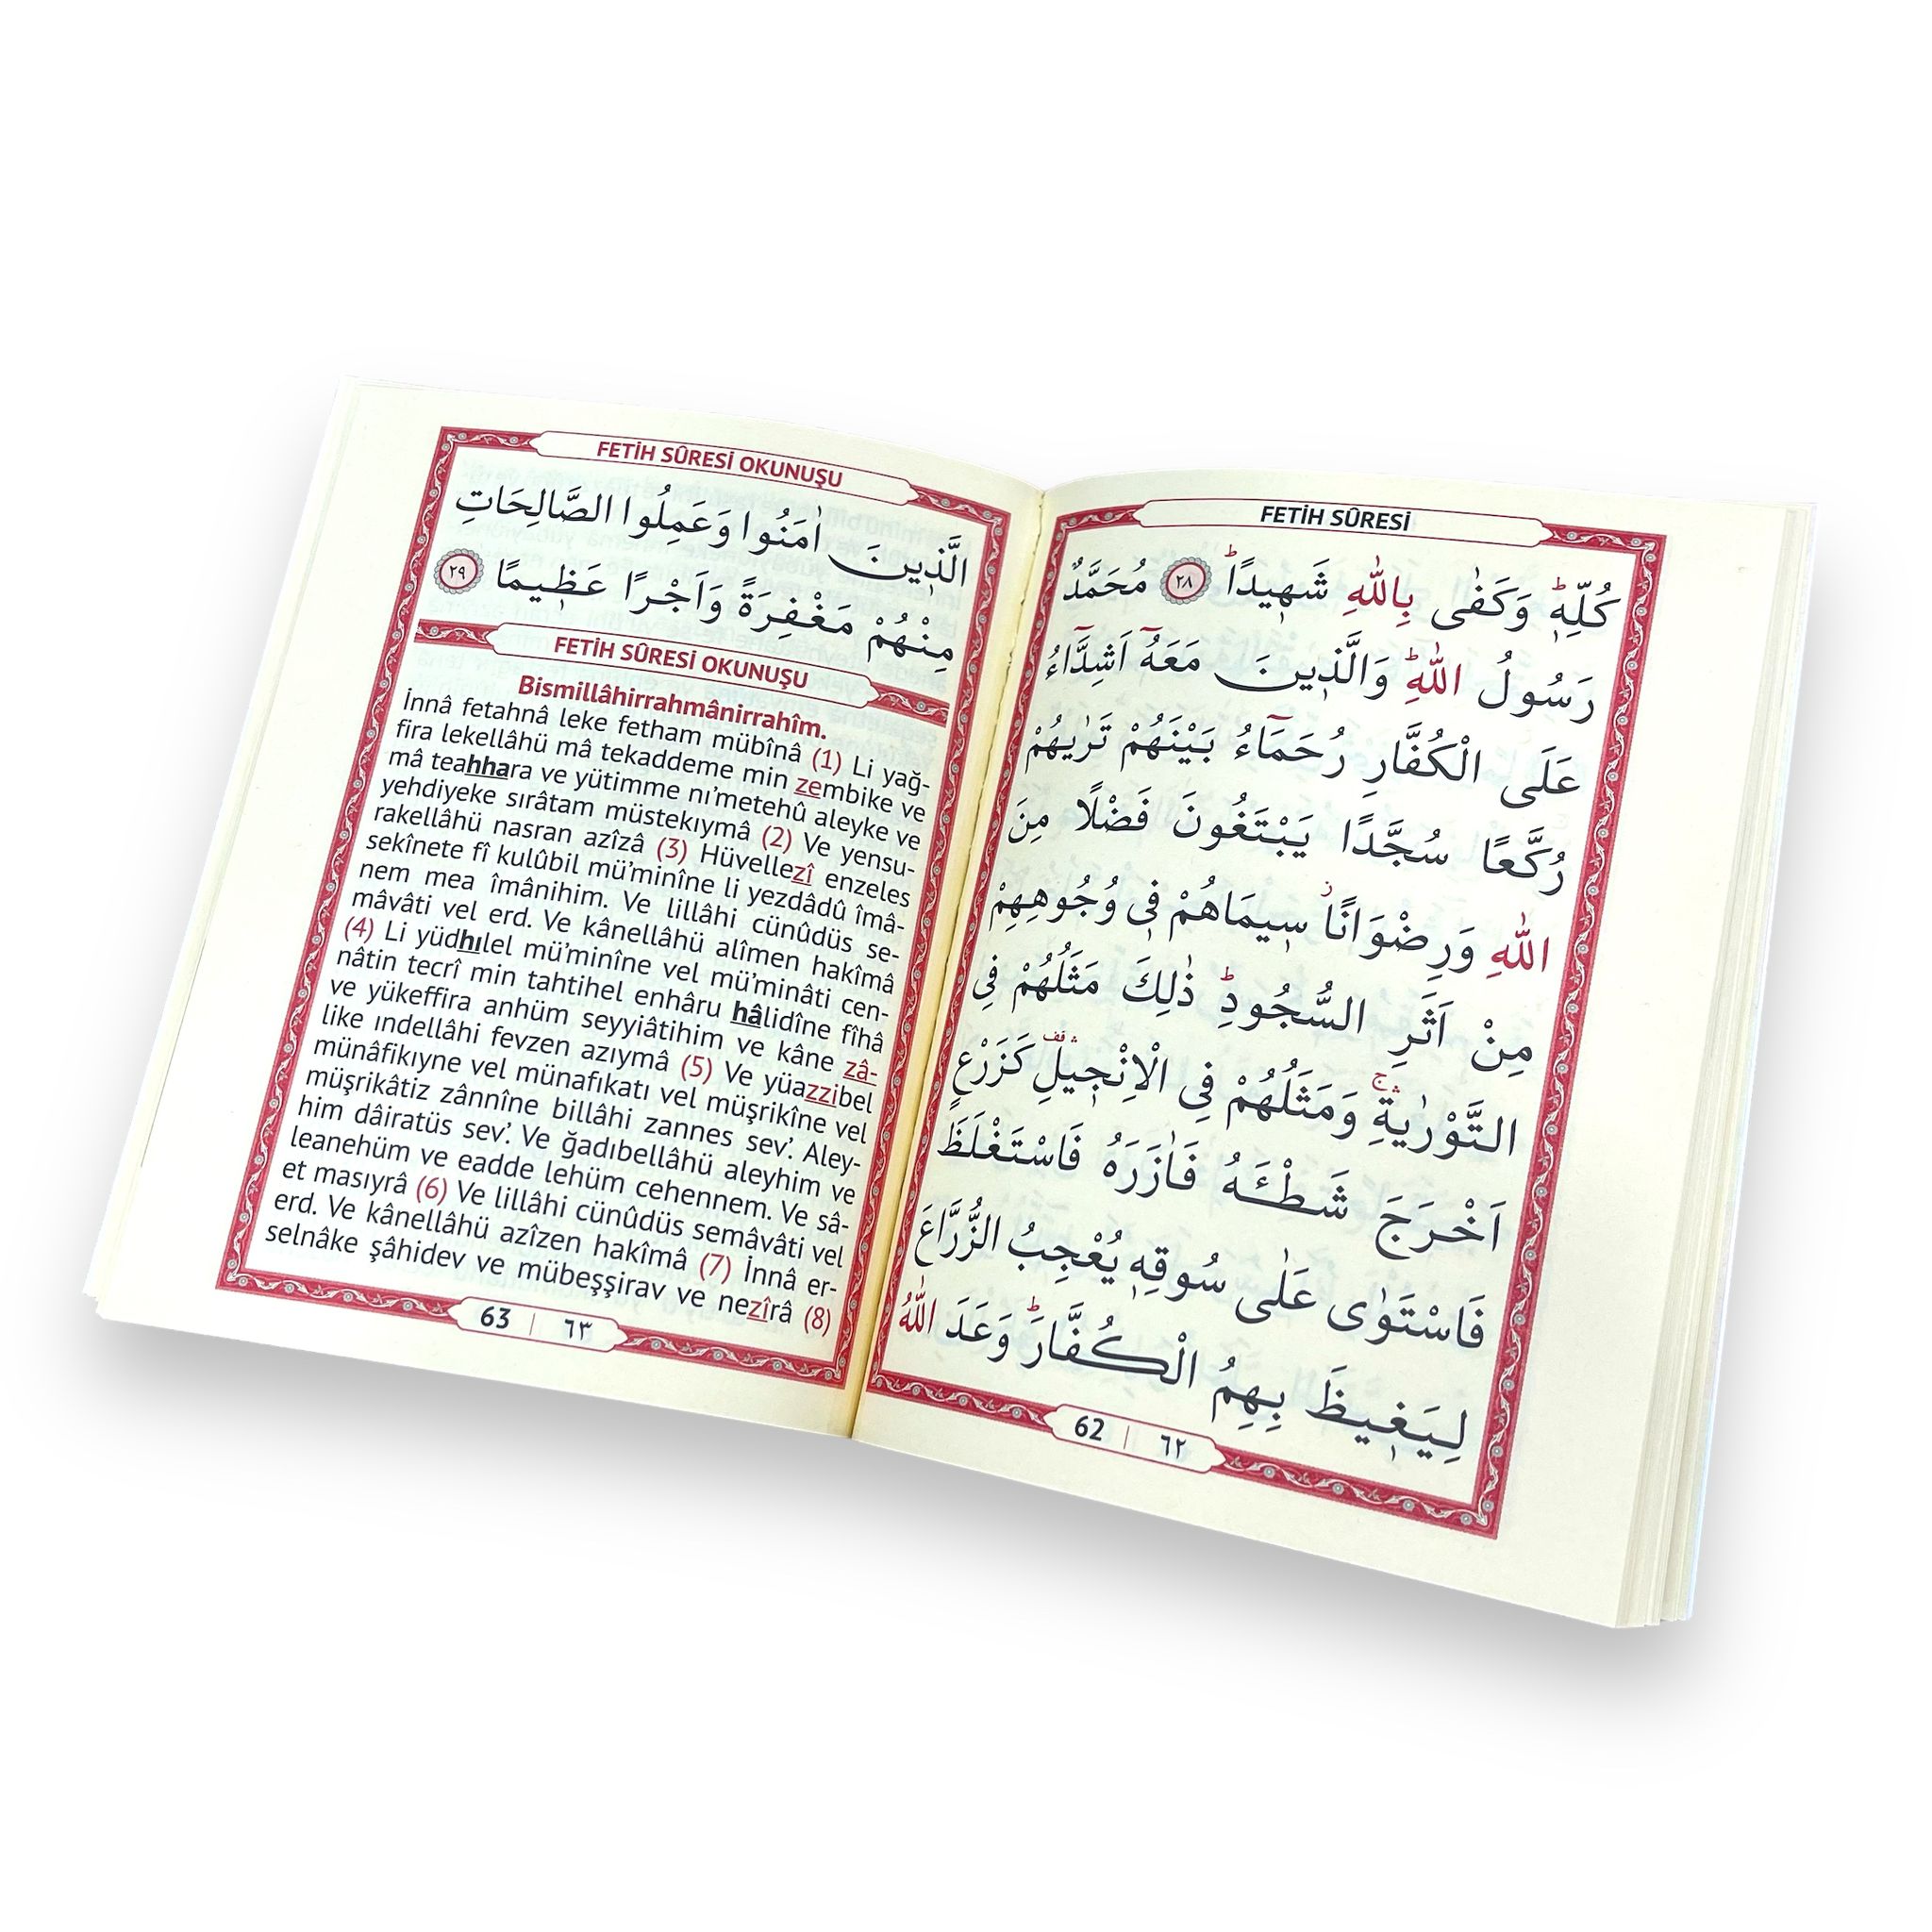 FETİH SÛRESİ
كُلِّهٖۜ وَكَفٰى بِاللّٰهِ شَهٖيدًاۜ ﴿٢٨﴾ مُحَمَّدٌ
رَسُولُ اللّٰهِۜ وَالَّذٖينَ مَعَهُٓ اَشِدَّٓاءُ
عَلَى الْكُفَّارِ رُحَمَٓاءُ بَيْنَهُمْ تَرٰيهُمْ
رُكَّعًا سُجَّدًا يَبْتَغُونَ فَضْلًا مِنَ
اللّٰهِ وَرِضْوَانًاؗ سٖيمَاهُمْ فٖى وُجُوهِهِمْ
مِنْ اَثَرِ السُّجُودِۜ ذٰلِكَ مَثَلُهُمْ فِى
التَّوْرٰيةِۚ وَمَثَلُهُمْ فِى الْاِنْجٖيلِ كَزَرْعٍ
اَخْرَجَ شَطْـَٔهُ فَاٰزَرَهُ فَاسْتَغْلَظَ
فَاسْتَوٰى عَلٰى سُوقِهٖ يُعْجِبُ الزُّرَّاعَ
لِيَغٖيظَ بِهِمُ الْكُفَّارَۜ وَعَدَ اللّٰهُ
62 | ٦٢
FETİH SÛRESİ OKUNUŞU
الَّذٖينَ اٰمَنُوا وَعَمِلُوا الصَّالِحَاتِ
مِنْهُمْ مَغْفِرَةً وَاَجْرًا عَظٖيمًا ﴿٢٩﴾
FETİH SÛRESİ OKUNUŞU
Bismillâhirrahmânirrahîm.
İnnâ fetahnâ leke fetham mübînâ (1) Li yağ-
fira lekellâhü mâ tekaddeme min zembike ve
mâ teahhara ve yütimme nı’metehû aleyke ve
yehdiyeke sırâtam müstekıymâ (2) Ve yensu-
rakellâhü nasran azîzâ (3) Hüvellezî enzeles
sekînete fî kulûbil mü’minîne li yezdâdû îmâ-
nem mea îmânihim. Ve lillâhi cünûdüs se-
mâvâti vel erd. Ve kânellâhü alîmen hakîmâ
(4) Li yüdhılel mü’minîne vel mü’minâti cen-
nâtin tecrî min tahtihel enhâru hâlidîne fîhâ
ve yükeffira anhüm seyyiâtihim ve kâne zâ-
like ındellâhi fevzen azıymâ (5) Ve yüazzibel
münâfikıyne vel münafıkatı vel müşrikîne vel
müşrikâtiz zânnîne billâhi zannes sev’. Aley-
him dâiratüs sev’. Ve ğadıbellâhü aleyhim ve
leanehüm ve eadde lehüm cehennem. Ve sâ-
et masıyrâ (6) Ve lillâhi cünûdüs semâvâti vel
erd. Ve kânellâhü azîzen hakîmâ (7) İnnâ er-
selnâke şâhidev ve mübeşşirav ve nezîrâ (8)
63 | ٦٣